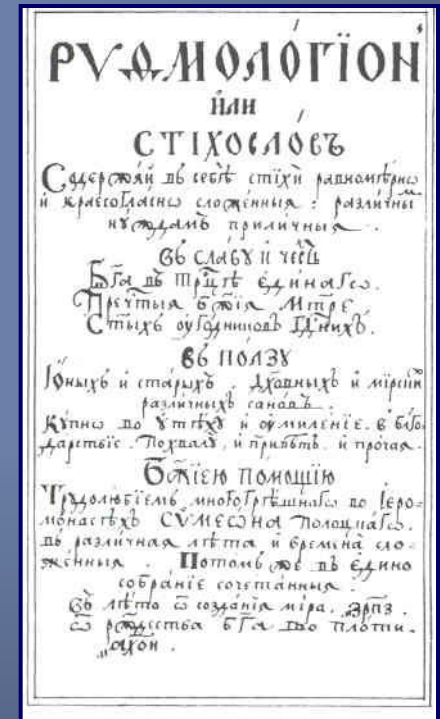 РѴѲМОЛО́ГЇОН
и҆лѝ
СТІХОСЛО́ВЪ
Содержѧ́й въ себѣ̀ стїхѝ равномѣ́рнѡ
и҆ краесогла́снѡ сложе́нныѧ : разли́чны
нꙋ́ждамъ прили́чныѧ .
Въ сла́вꙋ и҆ че́сть
Бг҃а въ Трⷪ҇цѣ є҆ди́нагѡ .
Пречⷭ҇тыѧ бж҃їѧ Мт҃ре
Ст҃ыхъ оу҆го́дникѡвъ гдⷭ҇нихъ .
Въ по́лзꙋ
Ю҆́ныхъ и҆ ста́рыхъ . дꙋхо́вныхъ и҆ мїрски́
разли́чныхъ сано́въ .
Кꙋ́пнѡ во оу҆тѣ́хꙋ и҆ оу҆миле́нїе . в бл҃го
да́рствїе . Похвалꙋ̀ , и҆ привѣ́тъ , и҆ про́чаѧ .
Бж҃їею по́мощїю
Трꙋдолю́бїемъ многогрѣ́шнагѡ во Іеро-
мона́сѣхъ СѴМЕѠ́НА По́лоцкагѡ .
въ разли́чнаѧ лѣ̑та и҆ времена̀ сло-
же́нныѧ . Пото́мъ же въ є҆ди́но
собра́нїе сочета́нныѧ .
Въ лѣ́то ѿ созда́нїѧ мі́ра . ҂зрпз .
ѿ рождества̀ бг҃а во пло́ти .
҂ахои .